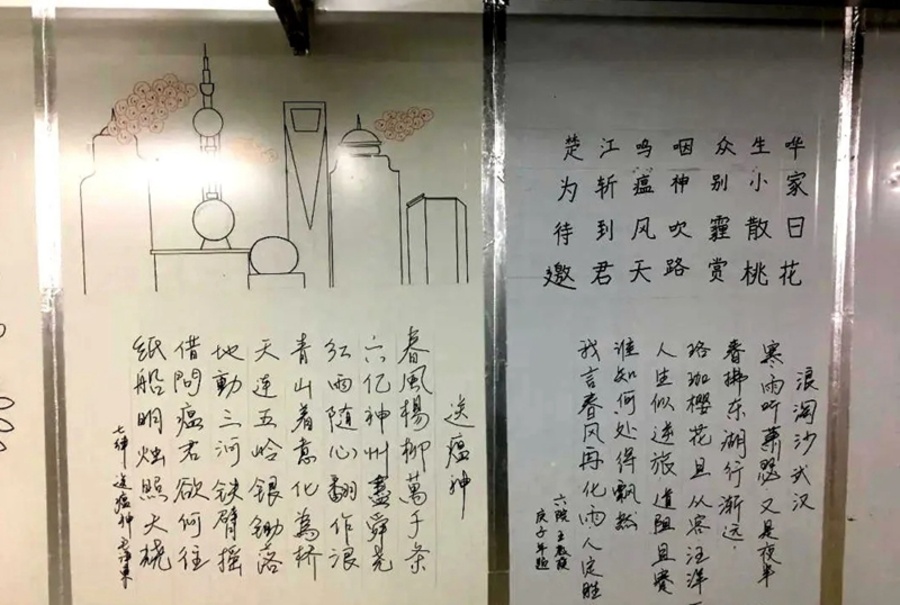 送瘟神
春風楊柳萬千条
六亿神州盡舜尧
红雨随心翻作浪
青山着意化為桥
天连五岭银锄落
地動三河铁臂摇
借問瘟君欲何往
纸船明烛照天烧
七律 送瘟神 毛泽东
楚江鸣咽众生哗
为斩瘟神别小家
待到风吹霾散日
邀君天路赏桃花
浪淘沙武汉
寒雨听萧瑟又是夜半
春拂东湖行渐远.
珞珈樱花且从容汪洋
人生似逆旅道阻且
谁知何处得飘然
我言春风再化雨人定胜
六院 王
庚子年题